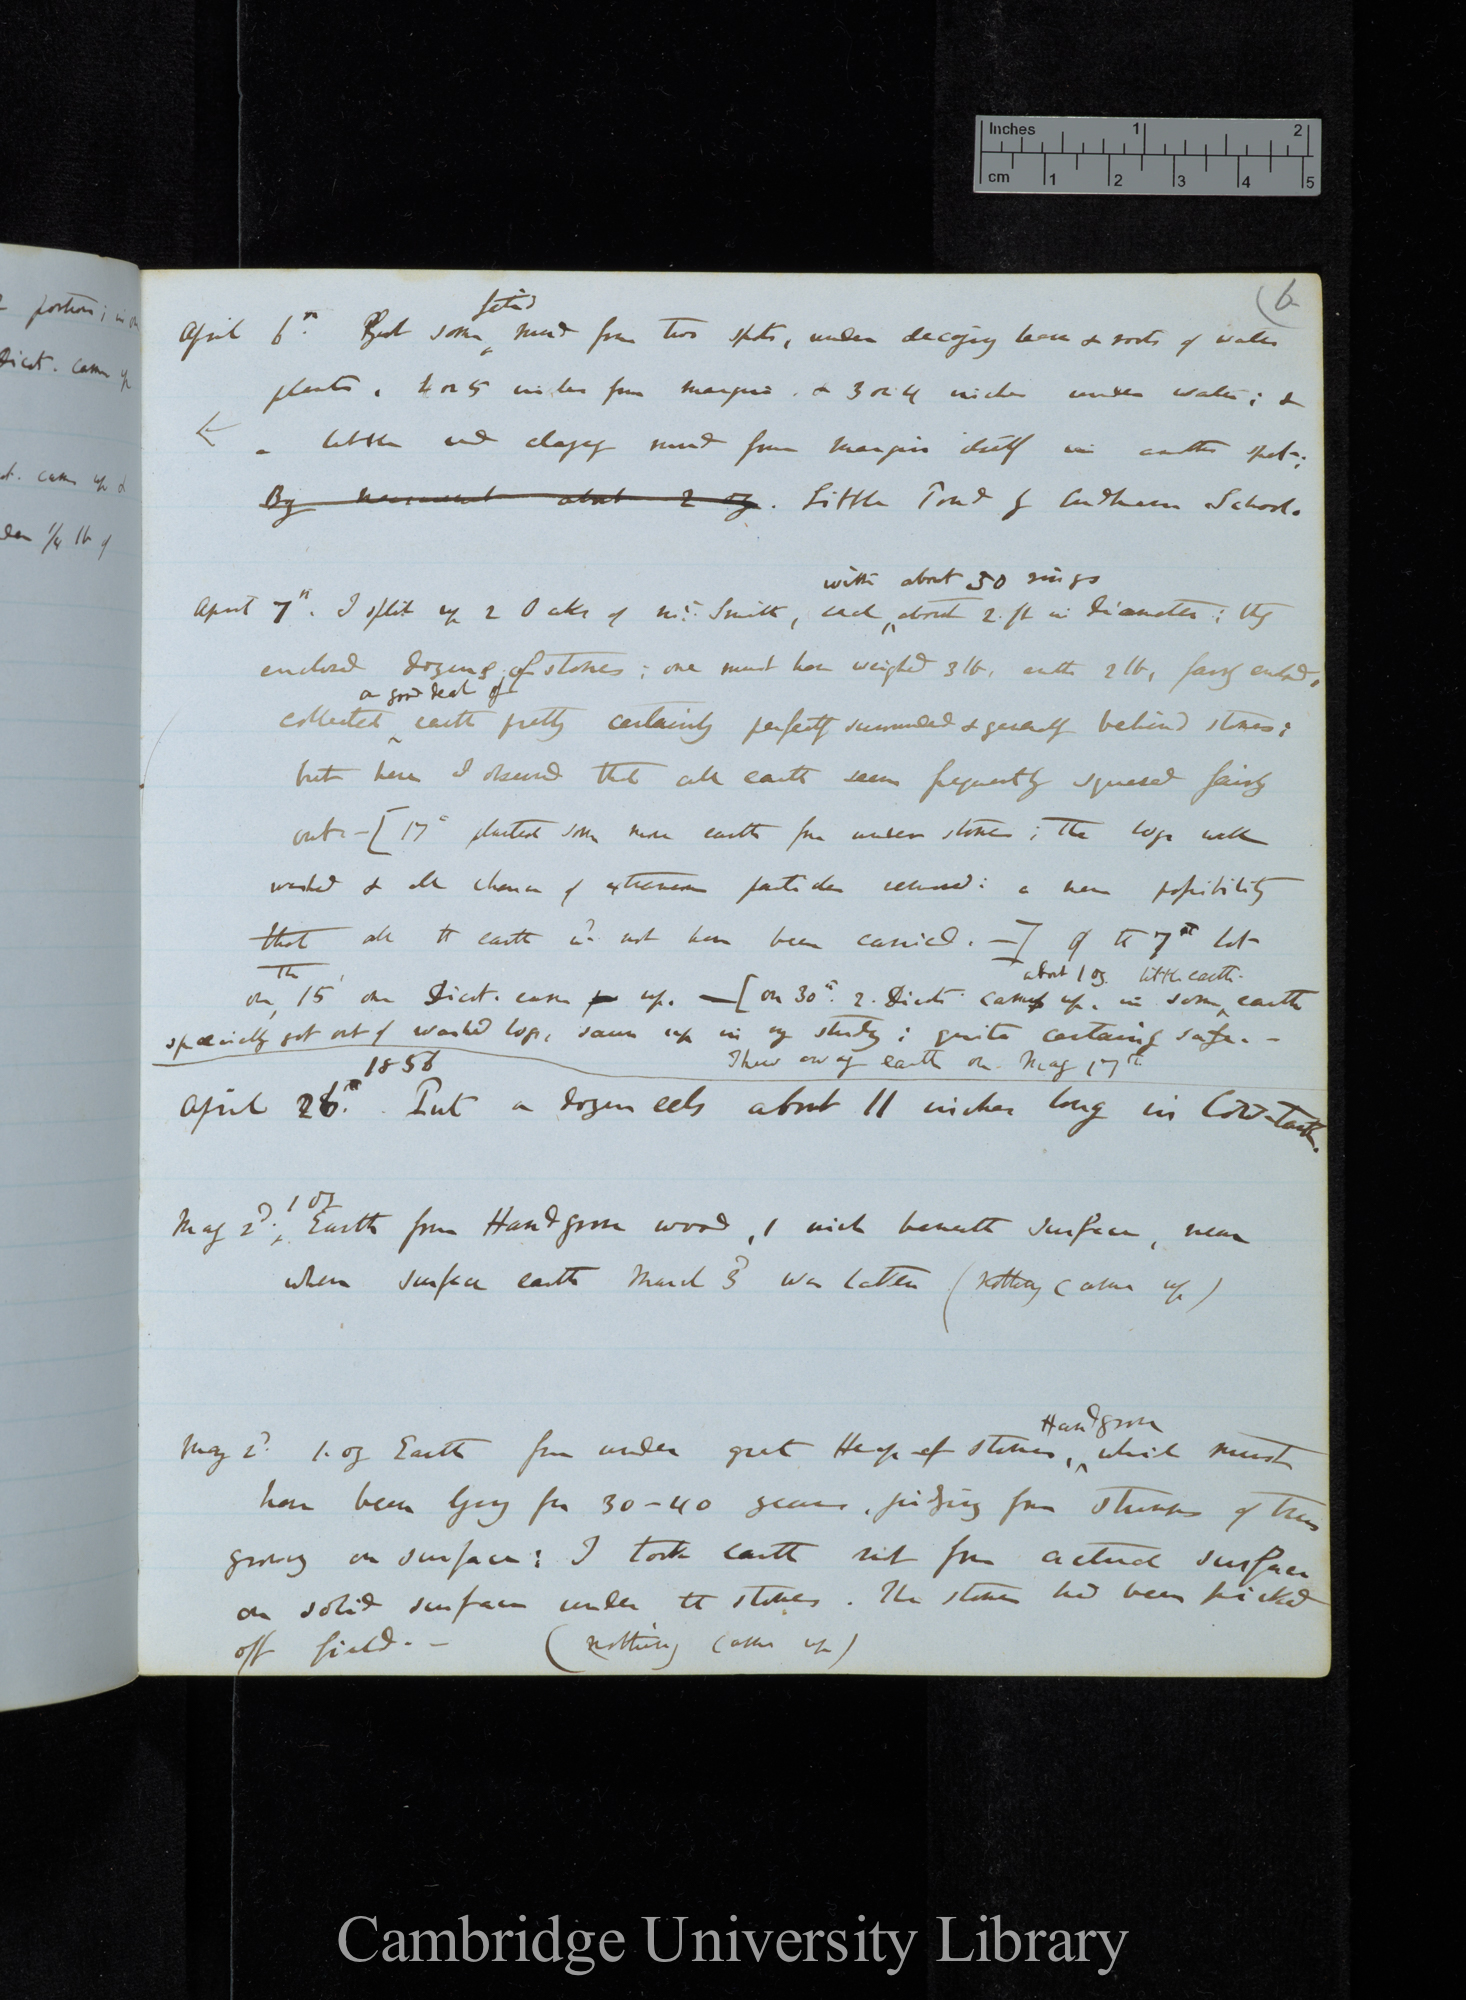 Inches 1 2
cm 1 2 3 4 5
(6
portion; in
Dicot. came up
came up &
1/4 lb of
fetid
April 6th. Put some mud from two spots, under decaying leaves & roots of water
plants, 4 or 5 inches from margin. & 3 or 4 inches under water; &
a little red clayey mud from margin itself in another spot;
By measurement about 2 oz. Little Pond of Southern School.
with about 50 rings
April 7th. I split up 2 Oaks of Mr. Smith, each about 2 ft in diameter; they
enclosed dozens of stones; one must have weighed 3 lb, another 2 lb, fairly enclosed,
a good deal of
collected earth pretty certainly perfectly surrounded & generally behind stones;
but here I observed that all earth seems frequently squeezed fairly
out. — [17th planted some more earth from under stones; the logs well
washed & all chance of extraneous particles removed: a mere possibility
that all the earth not have been carried. —] of the 7th lot
The about 1 oz little earth.
on 15 one Dicot. came up. — [on 30th. 2. Dicots came up. in some earth
specially got out of washed logs, sown up in my study; quite certainly safe. —
1856 Threw away earth on May 17th
April 26th. Put a dozen eels about 11 inches long in Cow-Tank.
1 oz
May 2d. Earth from Handgrove wood, 1 inch beneath surface, near
where surface earth March 3d was taken (nothing came up)
Handgrove
May 2d. 1. oz Earth from under great Heap of stones, which must
have been lying for 30-40 years, judging from stumps of trees
growing on surface; I took earth not from actual surface
on solid surface under the stones. The stones had been picked
off field. — (nothing came up)
Cambridge University Library